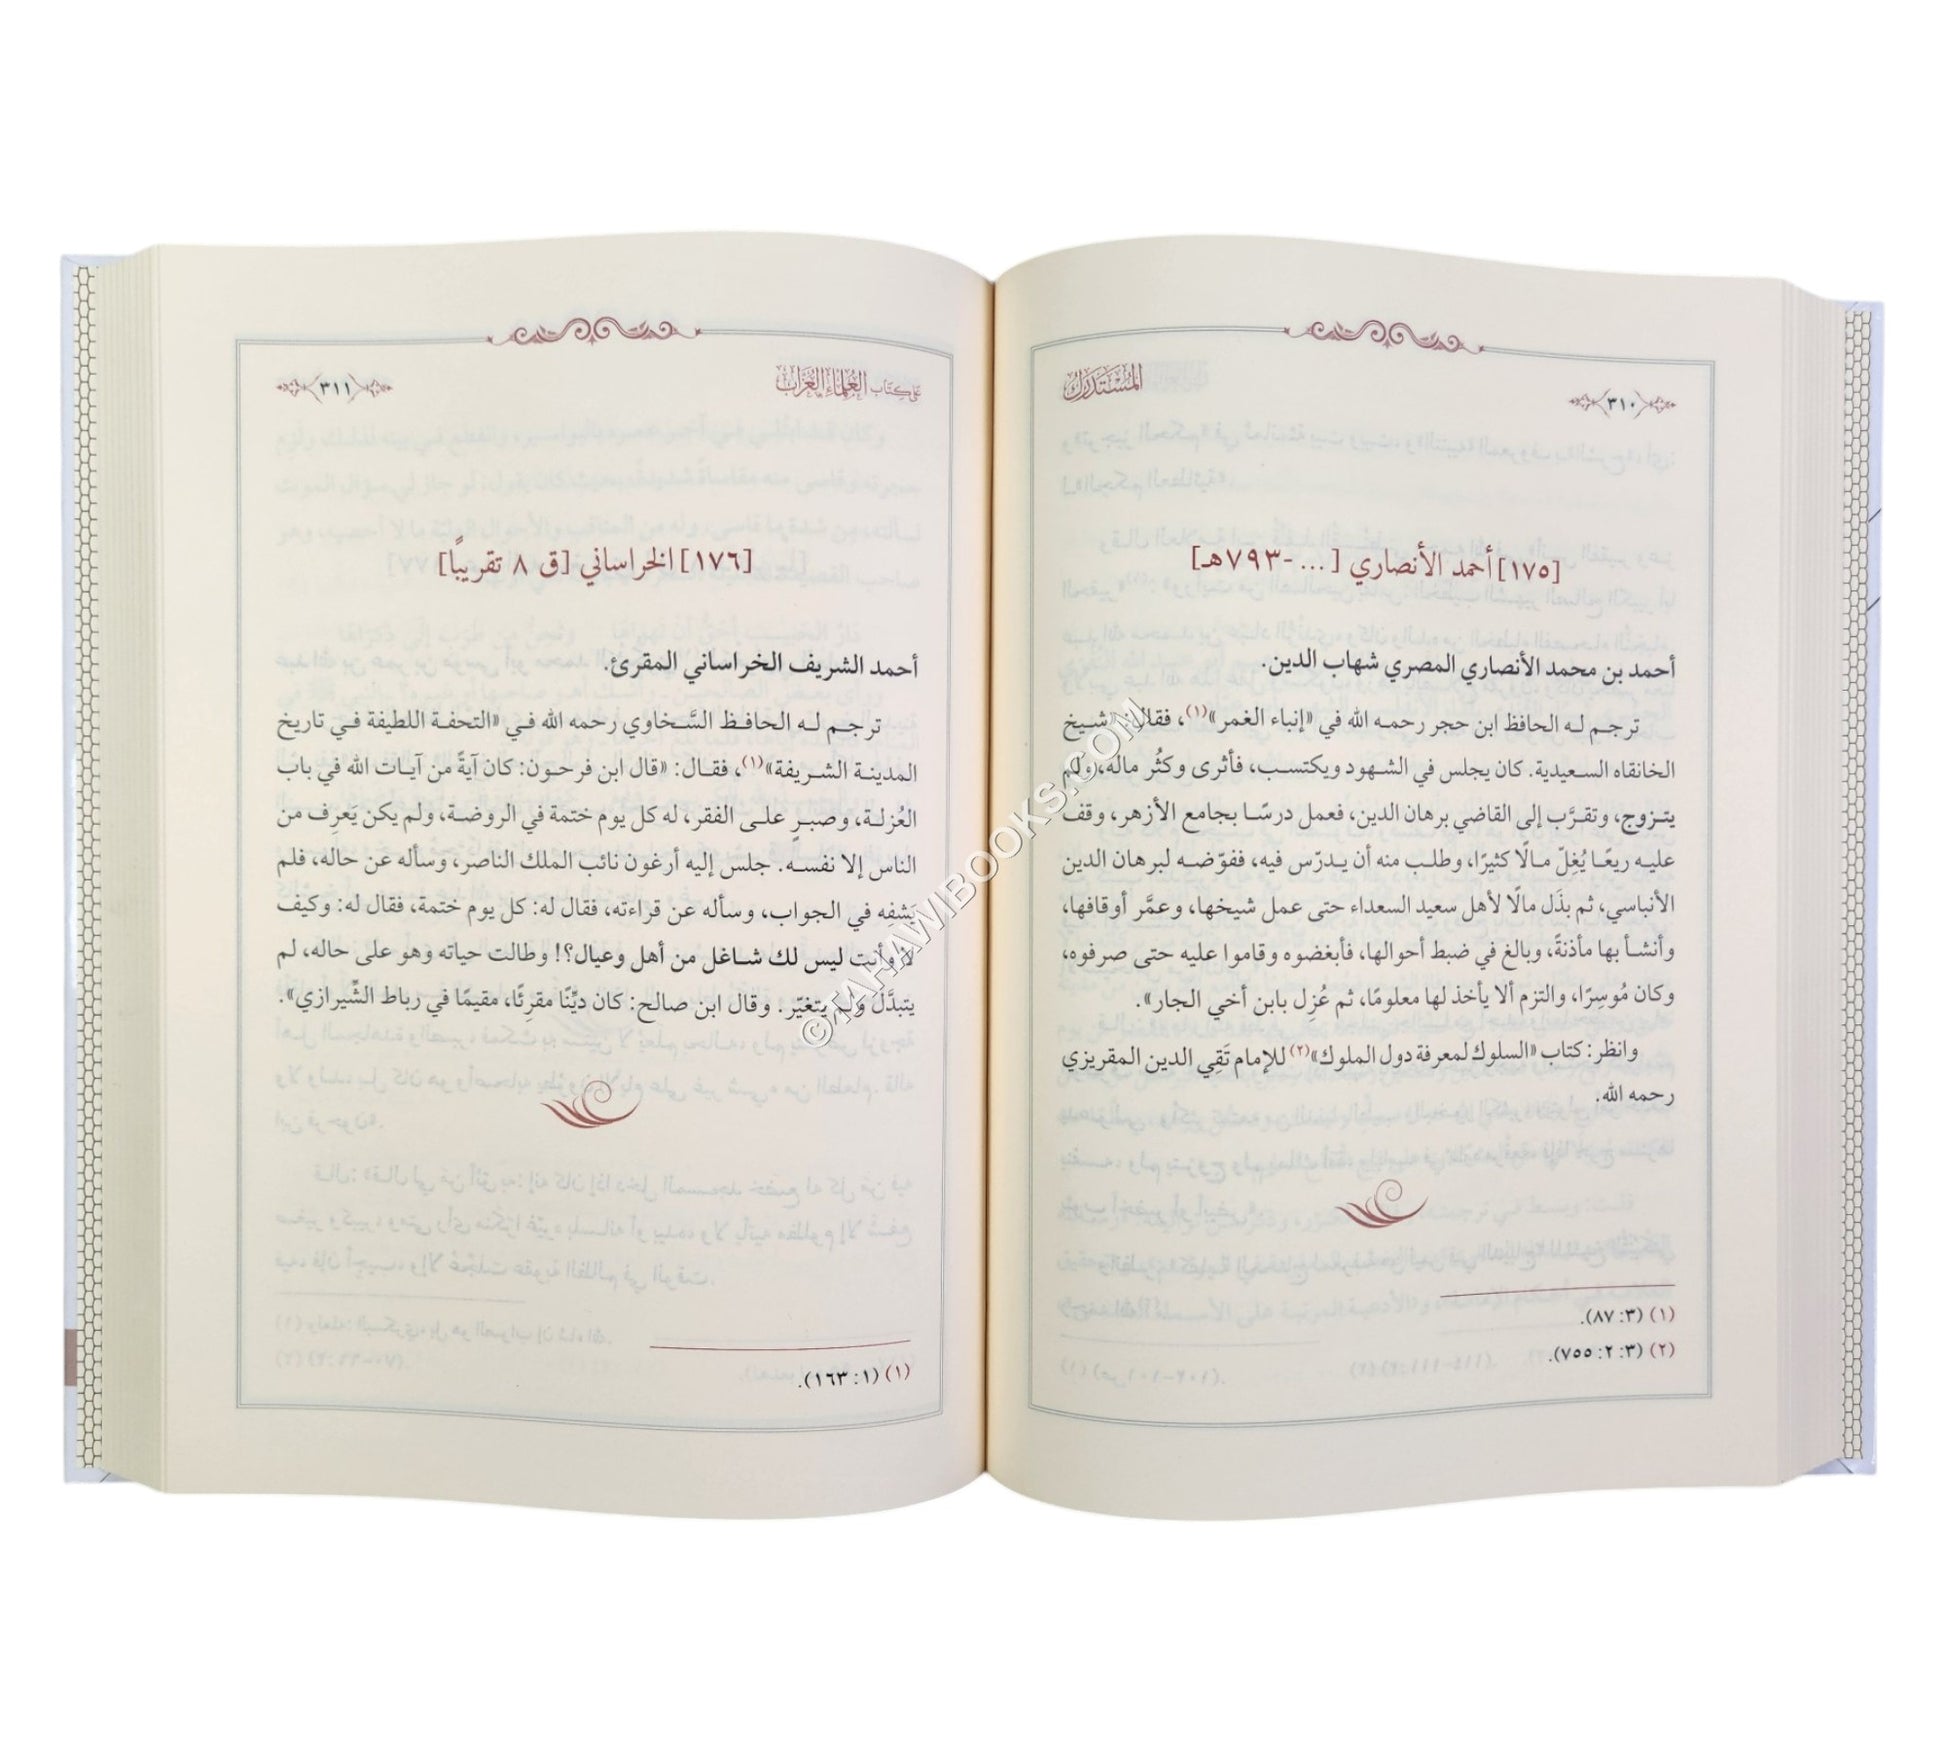 المستدرك
٣١٠
[١٧٥] أحمد الأنصاري [... -٧٩٣هـ]
أحمد بن محمد الأنصاري المصري شهاب الدين.
ترجم له الحافظ ابن حجر رحمه الله في «إنباء الغمر»(١)، فقال: «شيخ
الخانقاه السعيدية. كان يجلس في الشهود ويكتسب، فأثرى وكثُر ماله، ولم
يتزوج، وتقرَّب إلى القاضي برهان الدين، فعمل درسًا بجامع الأزهر، وقف
عليه ريعًا يُغِلّ مالًا كثيرًا، وطلب منه أن يدرّس فيه، ففوّضه لبرهان الدين
الأنباسي، ثم بذَل مالًا لأهل سعيد السعداء حتى عمل شيخها، وعمَّر أوقافها،
وأنشأ بها مأذنةً، وبالغ في ضبط أحوالها، فأبغضوه وقاموا عليه حتى صرفوه،
وكان مُوسِرًا، والتزم ألا يأخذ لها معلومًا، ثم عُزِل بابن أخي الجار».
وانظر: كتاب «السلوك لمعرفة دول الملوك»(٢) للإمام تَقِي الدين المقريزي
رحمه الله.
(١) (٣: ٨٧).
(٢) (٣: ٢: ٧٥٥).
على كتاب العلماء العزاب
٣١١
[١٧٦] الخراساني [ق ٨ تقريبًا]
أحمد الشريف الخراساني المقرئ.
ترجم له الحافظ السَّخاوي رحمه الله في «التحفة اللطيفة في تاريخ
المدينة الشريفة»(١)، فقال: «قال ابن فرحون: كان آيةً من آيات الله في باب
العُزلة، وصبرٍ على الفقر، له كل يوم ختمة في الروضة، ولم يكن يَعرِف من
الناس إلا نفسه. جلس إليه أرغون نائب الملك الناصر، وسأله عن حاله، فلم
يَشفِه في الجواب، وسأله عن قراءته، فقال له: كل يوم ختمة، فقال له: وكيف
لا وأنت ليس لك شاغل من أهل وعيال؟! وطالت حياته وهو على حاله، لم
يتبدَّل ولم يتغيّر. وقال ابن صالح: كان ديِّنًا مقرِئًا، مقيمًا في رباط الشِّيرازي».
(١) (١: ١٦٣).
©TAHAWIBOOKS.COM